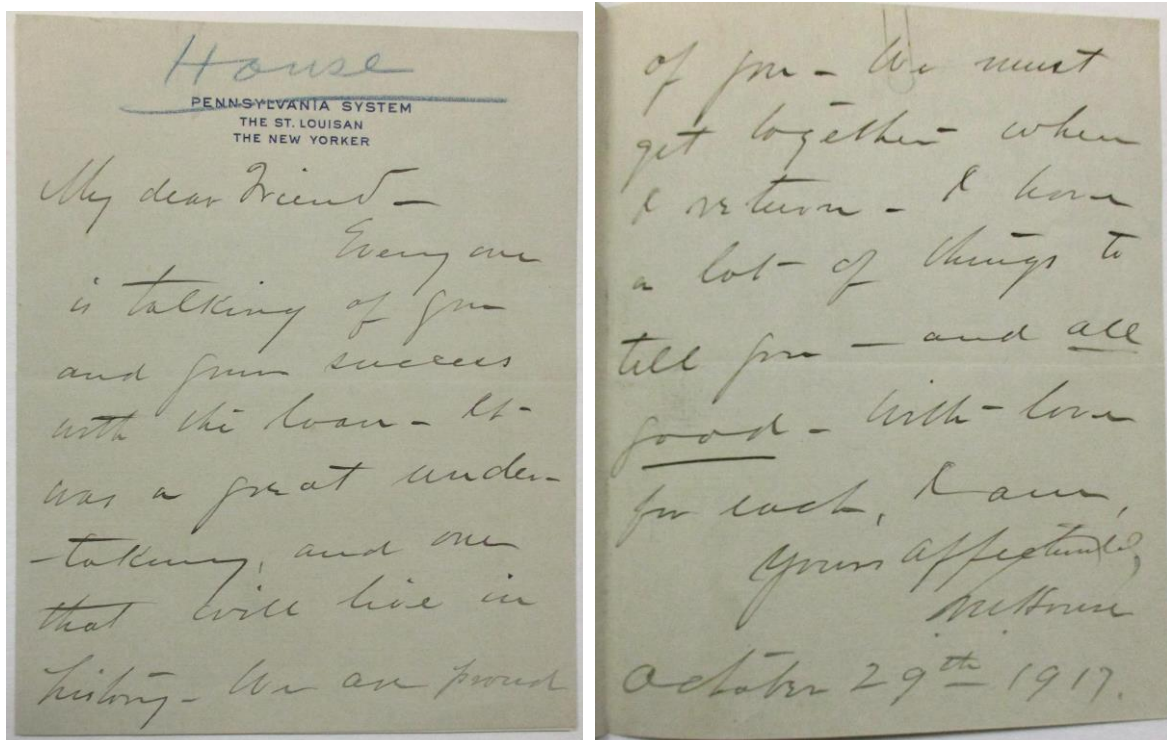 House
PENNSYLVANIA SYSTEM
THE ST. LOUISAN
THE NEW YORKER
My dear Friend –
Every one
is talking of you
and your success
with the loan – It
was a great under-
-taking, and one
that will live in
history – We are proud
of you – We must
get together when
I return – I have
a lot of things to
tell you – and all
good – With love
for each, I am,
Yours affectionately,
House
October 29th 1917.